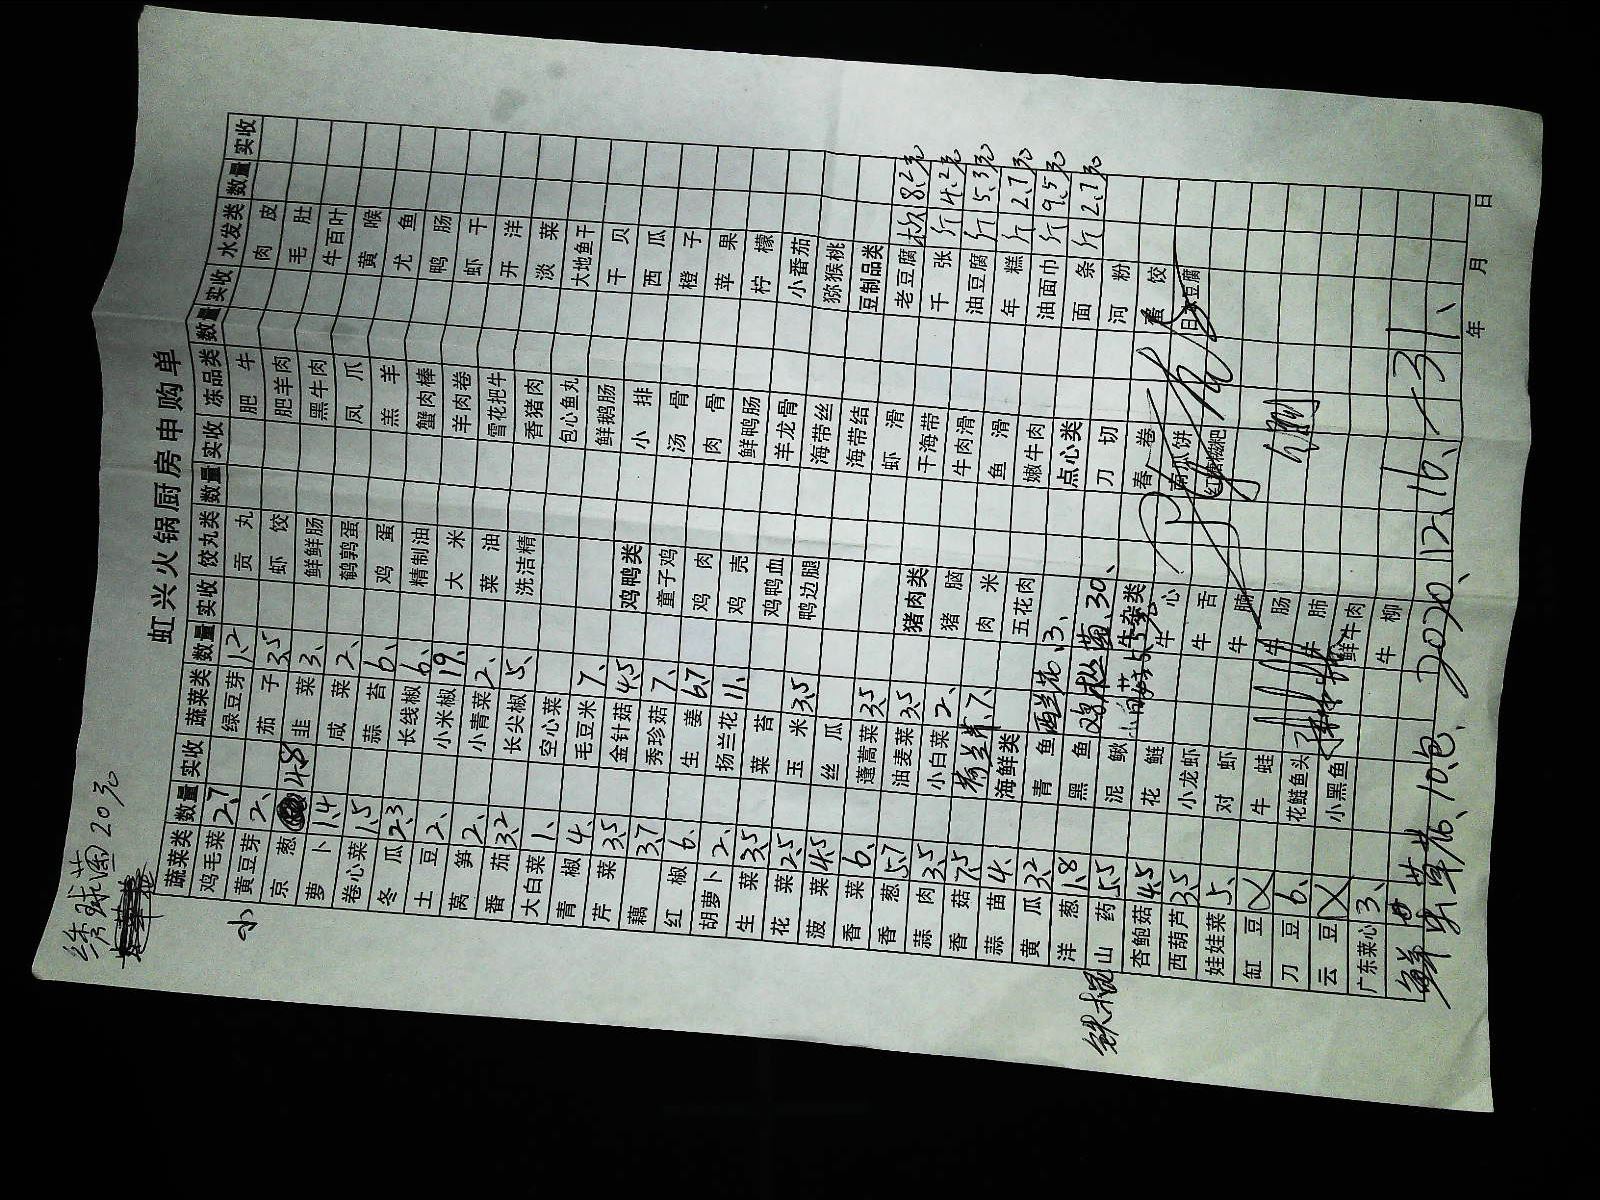 绣球菌20元
虹兴火锅厨房申购单
蔬菜类 数量 实收 蔬菜类 数量 实收 饺丸类 数量 实收 冻品类 数量 实收 水发类 数量 实收
鸡毛菜 2.7 绿豆芽 1.2 贡丸 肥牛 肉皮
小 黄豆芽 2、 茄子 3.5 虾饺 肥羊肉 毛肚
京葱 4.8 韭菜 3、 鲜鲜肠 黑牛肉 牛百叶
萝卜 1.4 咸菜 2、 鹌鹑蛋 凤爪 黄喉
卷心菜 1.5 蒜苔 6、 鸡蛋 羔羊 尤鱼
冬瓜 2.3 长线椒 6、 精制油 蟹肉棒 鸭肠
土豆 2、 小米椒 19、 大米 羊肉卷 虾干
莴笋 2、 小青菜 2、 菜油 雪花把牛 开洋
番茄 3.2 长尖椒 5、 洗洁精 香猪肉 淡菜
大白菜 1、 空心菜 包心鱼丸 大地鱼干
青椒 4、 毛豆米 7、 鲜鹅肠 干贝
芹菜 3.5 金针菇 4.5 鸡鸭类 小排 西瓜
藕 3.7 秀珍菇 7、 童子鸡 汤骨 橙子
红椒 6、 生姜 6.7 鸡肉 肉骨 苹果
胡萝卜 2、 扬兰花 11、 鸡壳 鲜鸭肠 柠檬
生菜 3.5 菜苔 鸡鸭血 羊龙骨 小番茄
花菜 2.5 玉米 3.5 鸭边腿 海带丝 猕猴桃
菠菜 4.5 丝瓜 海带结 豆制品类
香菜 6、 蓬蒿菜 3.5 虾滑 老豆腐 8.2元
香葱 5.7 油麦菜 3.5 猪肉类 干海带 千张 斤 4.2元
蒜肉 3.5 小白菜 2、 猪脑 牛肉滑 油豆腐 斤 5.3元
香菇 7.5 荷兰芹、7、 肉米 鱼滑 年糕 斤 2.7元
蒜苗 4、 海鲜类 五花肉 嫩牛肉 油面巾 斤 9.5元
黄瓜 3.2 青鱼 西兰花、3、 点心类 面条 斤 2.7元
洋葱 1.8 黑鱼 30、 刀切 河粉
铁棍 山药 5.5 泥鳅 牛杂类 春卷 蛋饺
杏鲍菇 4.5 花鲢 牛心 南瓜饼 日本豆腐
西葫芦 3.5 小龙虾 牛舌 红糖糍粑
娃娃菜 5、 对虾 牛腩
缸豆 牛蛙 牛肠
刀豆 6、 花鲢鱼头 牛肺
云豆 小黑鱼 鲜牛肉
广东菜心 3、 牛柳
10包、 2020、12、16、-31、
年 月 日